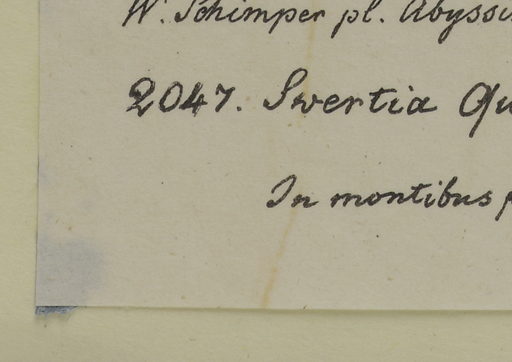 W. Schimper pl. Abyssi
2047. Swertia Qu
In montibus